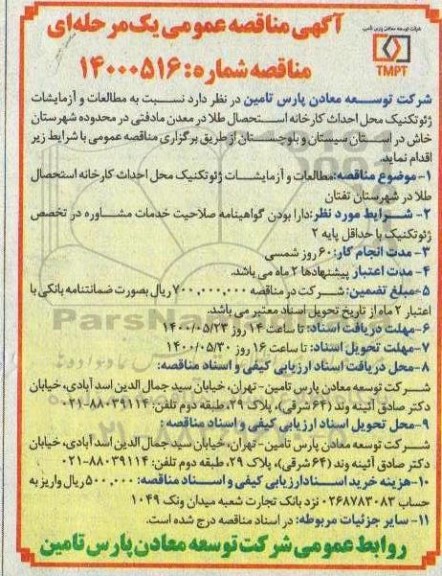 آگهی مناقصه عمومی یک مرحله‌ای
مناقصه شماره: ۱۴۰۰۰۵۱۶
شرکت توسعه معادن پارس تامین
TMPT
شرکت توسعه معادن پارس تامین در نظر دارد نسبت به مطالعات و آزمایشات
ژئوتکنیک محل احداث کارخانه استحصال طلا در معدن مادفتی در محدوده شهرستان
خاش در استان سیستان و بلوچستان از طریق برگزاری مناقصه عمومی با شرایط زیر
اقدام نماید.
۱- موضوع مناقصه: مطالعات و آزمایشات ژئوتکنیک محل احداث کارخانه استحصال
طلا در شهرستان تفتان
۲- شرایط مورد نظر: دارا بودن گواهینامه صلاحیت خدمات مشاوره در تخصص
ژئوتکنیک با حداقل پایه ۲
۳- مدت انجام کار: ۶۰ روز شمسی
۴- مدت اعتبار پیشنهادها ۲ ماه می باشد.
۵- مبلغ تضمین: شرکت در مناقصه ۷۰۰,۰۰۰,۰۰۰ ریال بصورت ضمانتنامه بانکی با
اعتبار ۲ ماه از تاریخ تحویل اسناد معتبر می باشد.
۶- مهلت دریافت اسناد: تا ساعت ۱۴ روز ۱۴۰۰/۰۵/۲۳
۷- مهلت تحویل اسناد: تا ساعت ۱۶ روز ۱۴۰۰/۰۵/۳۰
۸- محل دریافت اسناد ارزیابی کیفی و اسناد مناقصه:
شرکت توسعه معادن پارس تامین- تهران، خیابان سید جمال الدین اسد آبادی، خیابان
دکتر صادق آئینه وند (۶۴ شرقی)، پلاک ۲۹، طبقه دوم تلفن: ۸۸۰۳۹۱۱۴-۰۲۱
۹- محل تحویل اسناد ارزیابی کیفی و اسناد مناقصه:
شرکت توسعه معادن پارس تامین- تهران، خیابان سید جمال الدین اسد آبادی، خیابان
دکتر صادق آئینه وند (۶۴ شرقی)، پلاک ۲۹، طبقه دوم تلفن: ۸۸۰۳۹۱۱۴-۰۲۱
۱۰- هزینه خرید اسناد ارزیابی کیفی و اسناد مناقصه: ۵۰۰,۰۰۰ ریال واریز به
حساب ۰۲۶۸۷۸۳۰۸۳ نزد بانک تجارت شعبه میدان ونک ۱۰۴۹
۱۱- سایر جزئیات مربوطه: در اسناد مناقصه درج شده است.
روابط عمومی شرکت توسعه معادن پارس تامین